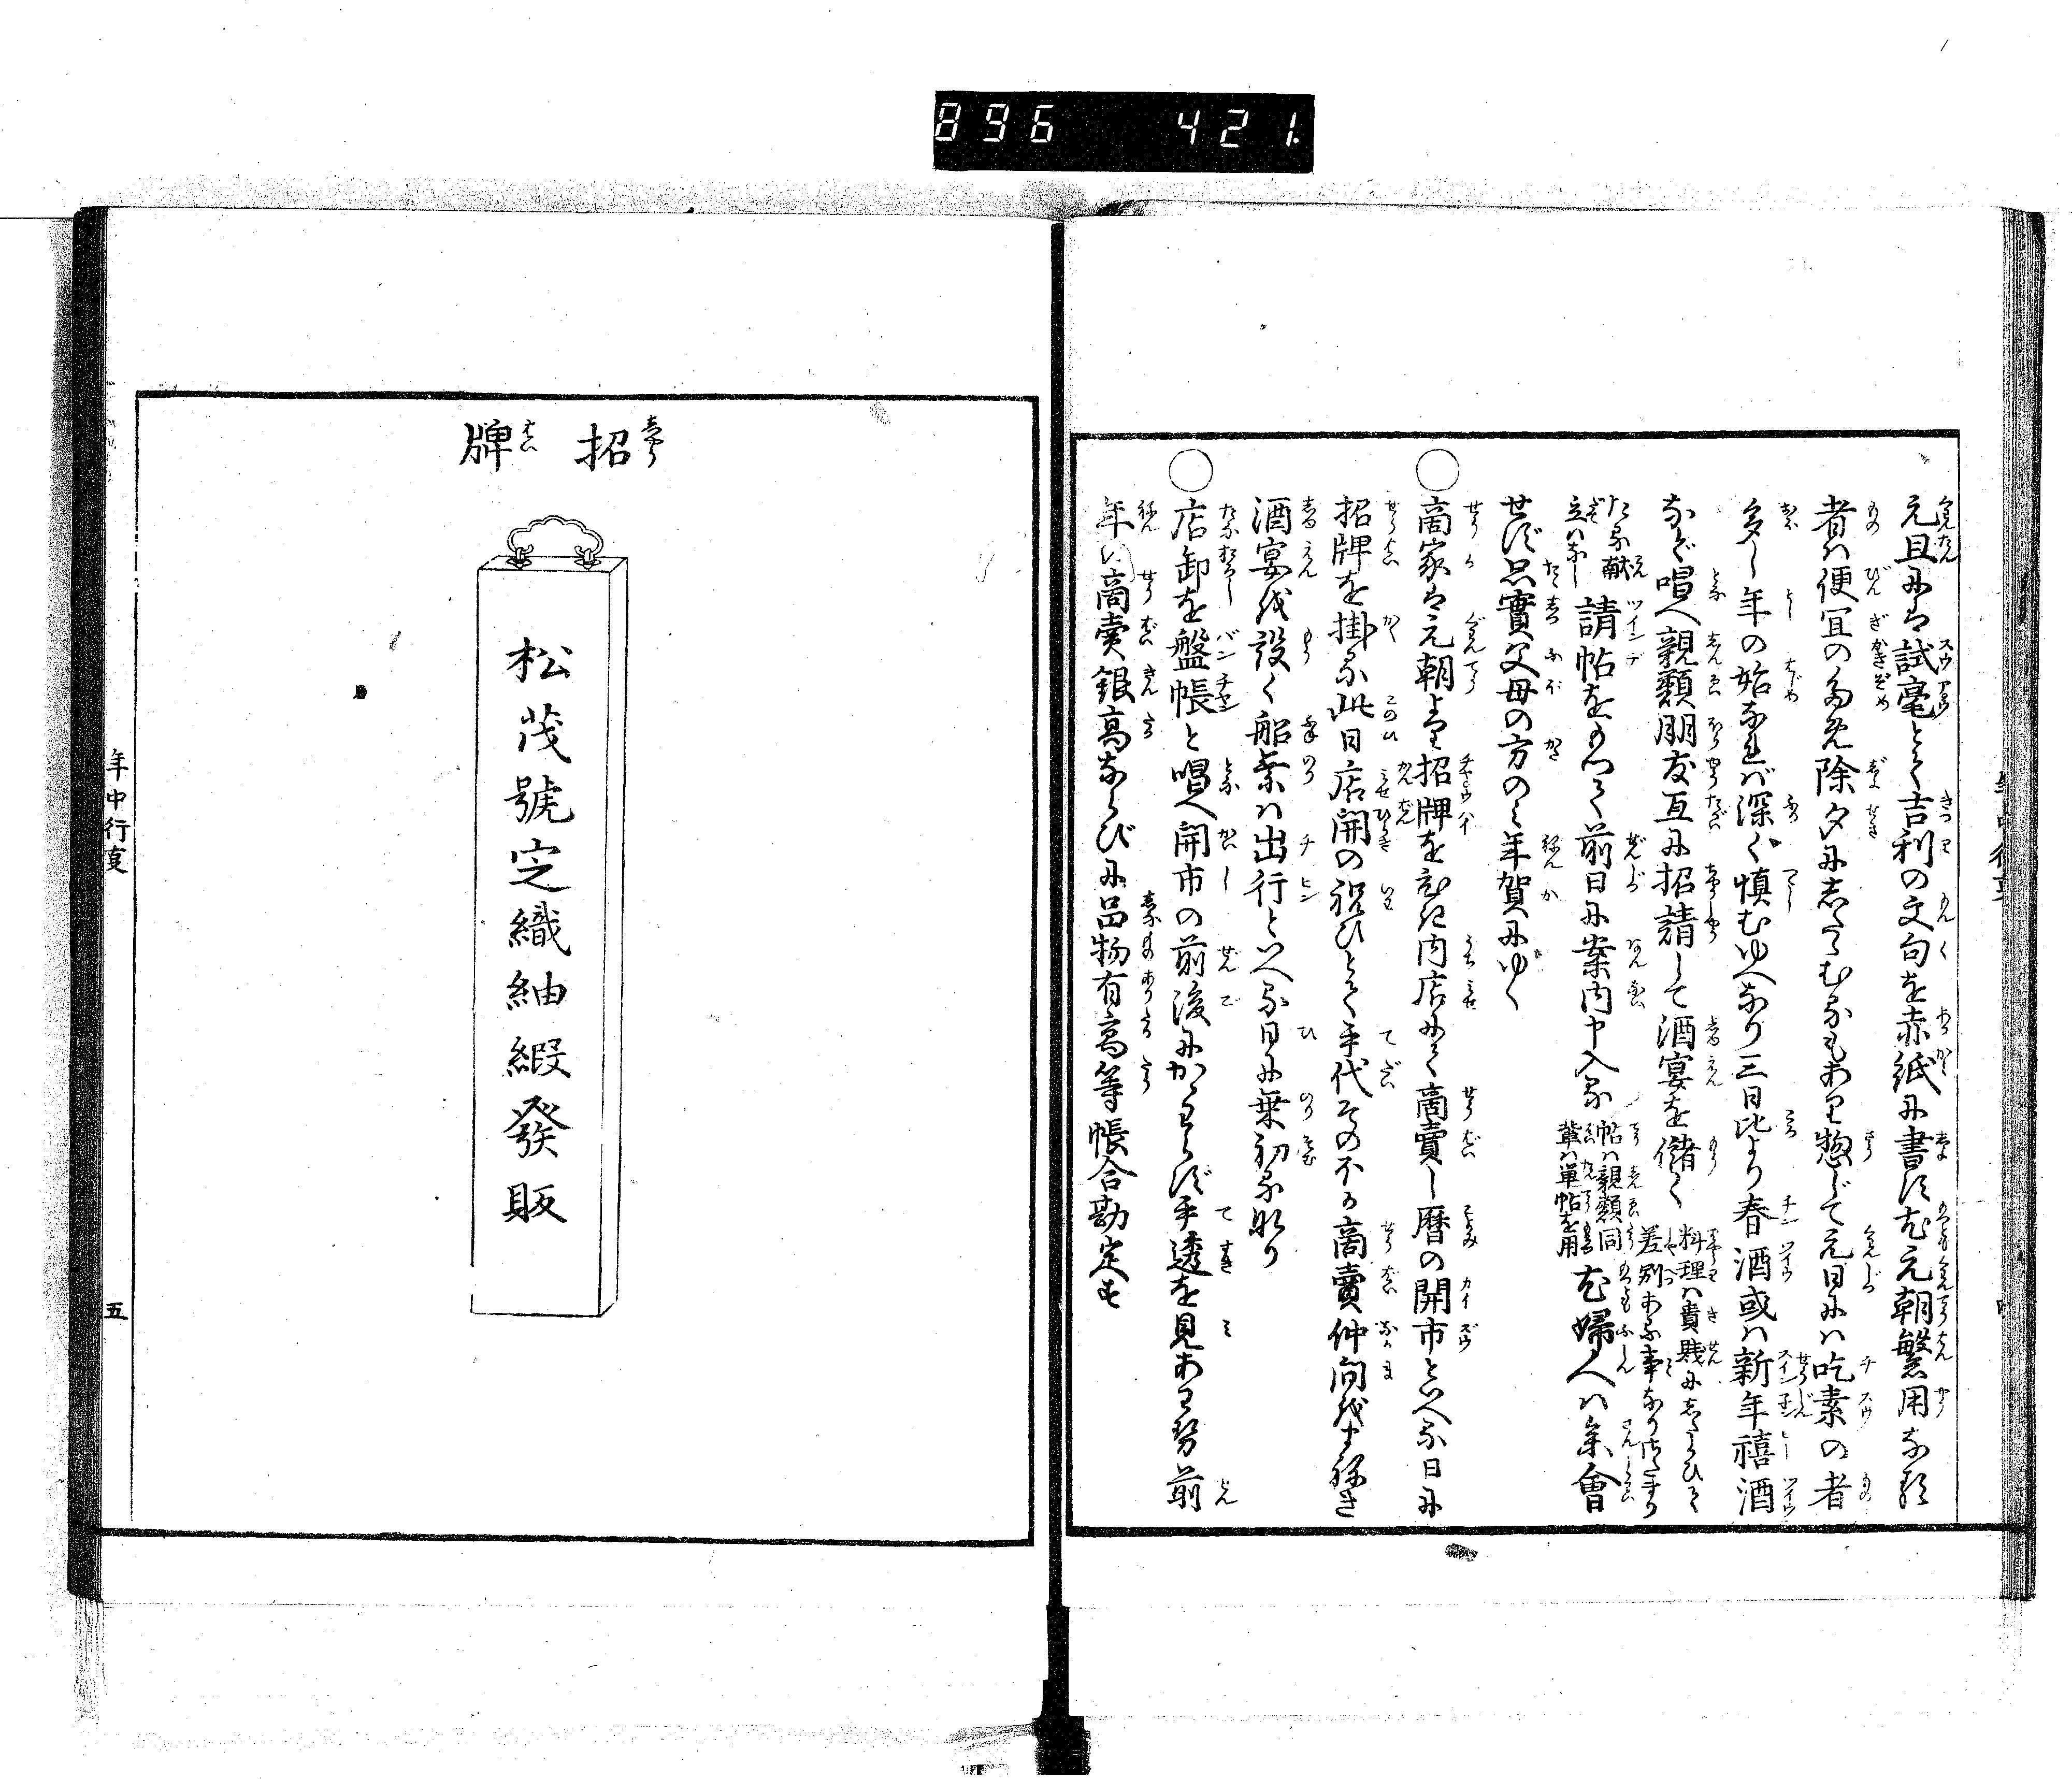 896 421.
元旦には試毫とて吉利の文句を赤紙に書す尤元朝繁用なる
者は便宜のため除夕にしたゝむるもあり惣じて元日には吃素の者
多し年の始なれば深く慎むゆへなり三日比より春酒或は新年禧酒
など唱へ親類朋友互に招請して酒宴を儲く
料理は貴賤にしたかひて
差別ある事なり
たる献
立はなし
請帖をもつて前日に案内申入る
帖は親類同
輩は単帖を用
尤婦人は参會
せず只實父母の方のみ年賀にゆく
○商家は元朝より招牌をはづし内店にて商賣し暦の開市といへる日に
招牌を掛る此日店開の祝ひとて手代そのほか商賣仲間をまねき
酒宴を設く船乗は出行といへる日に乗初る也
○店卸を盤帳と唱へ開市の前後にかゝはらず手透を見あはせ前
年の商賣銀高ならびに品物有高等帳合勘定す
招牌
松茂號定織紬緞發販
年中行事
五